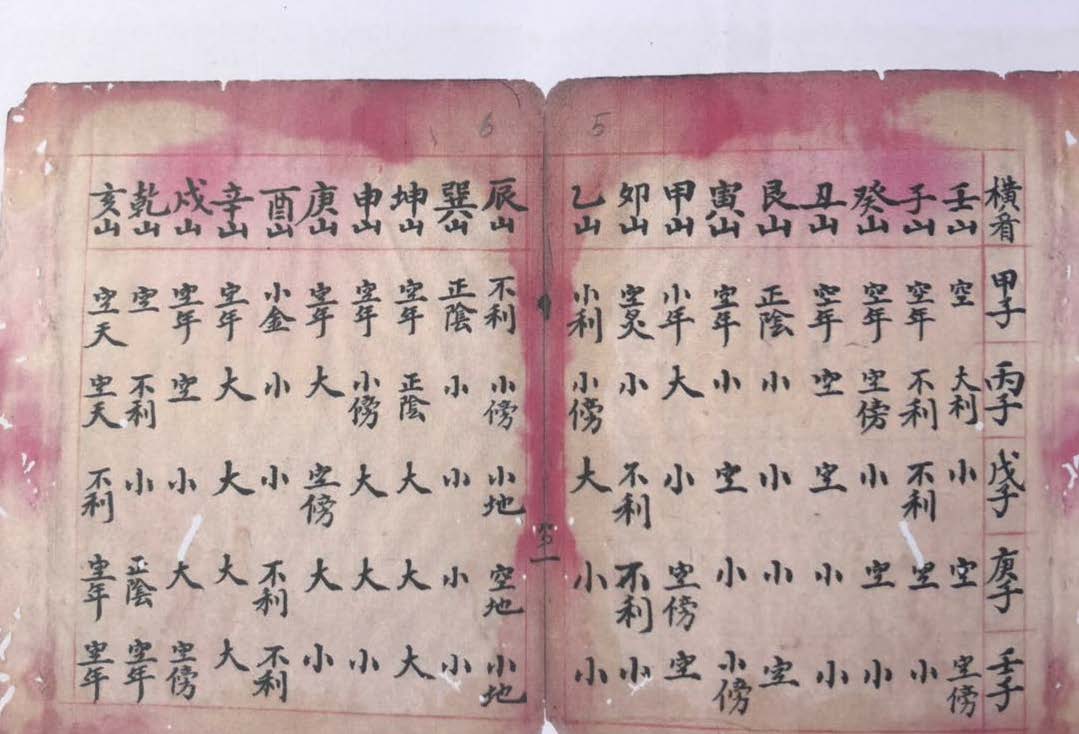 5
橫看 壬山 子山 癸山 丑山 艮山 寅山 甲山 卯山 乙山
甲子 空 空年 空年 空年 正陰 空年 小年 空炙 小利
丙子 大利 不利 空傍 空 小 小 大 小 小傍
戊子 小 不利 小 空 小 空 小 不利 大
庚子 空 空 空 小 小 小 空傍 不利 小
壬子 空傍 小 小 小 空 小傍 空 小 小
6
辰山 巽山 坤山 申山 庚山 酉山 辛山 戌山 乾山 亥山
不利 正陰 空年 空年 空年 小金 空年 空年 空 空天
小傍 小 正陰 小傍 大 小 大 空 不利 空天
小地 小 大 大 空傍 小 大 小 小 不利
空地 小 大 大 大 不利 大 大 正陰 空年
小地 小 大 小 小 不利 大 空傍 空年 空年